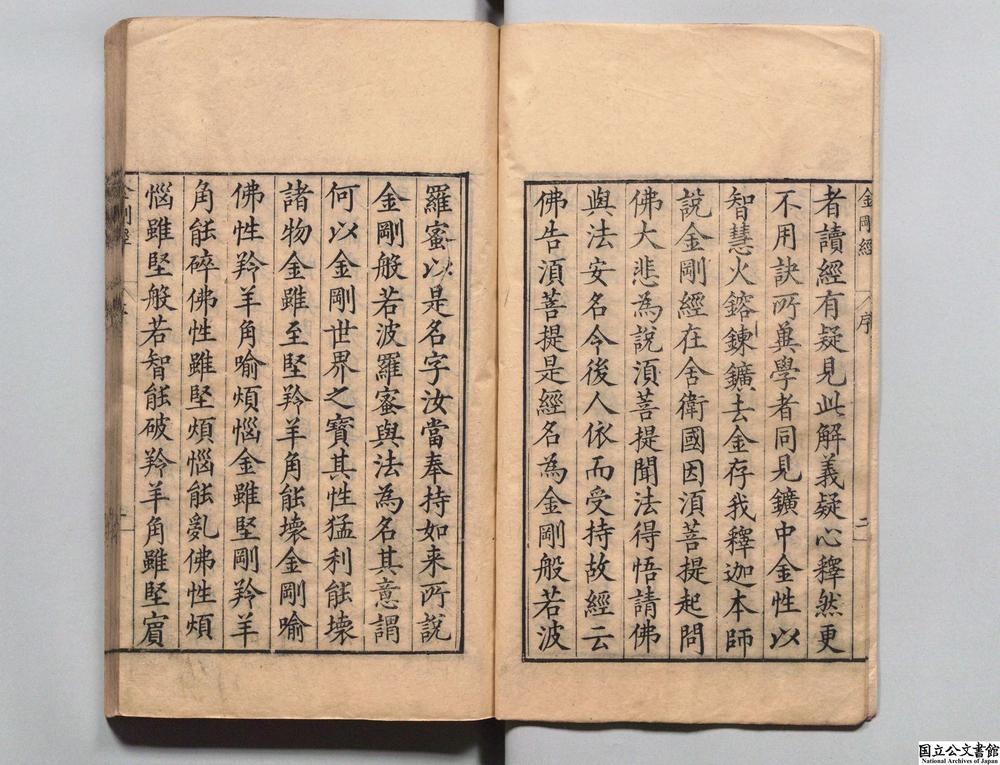 金剛經
序
二
者讀經有疑見此解義疑心釋然更
不用訣所兾學者同見鑛中金性以
智慧火鎔鍊鑛去金存我釋迦本師
說金剛經在舍衛國因須菩提起問
佛大悲為說須菩提聞法得悟請佛
與法安名令後人依而受持故經云
佛告須菩提是經名為金剛般若波
羅蜜以是名字汝當奉持如来所說
金剛般若波羅蜜與法為名其意謂
何以金剛世界之寳其性猛利能壊
諸物金雖至堅羚羊角能壊金剛喻
佛性羚羊角喻煩惱金雖堅剛羚羊
角能碎佛性雖堅煩惱能亂佛性煩
惱雖堅般若智能破羚羊角雖堅賔
国立公文書館
National Archives of Japan